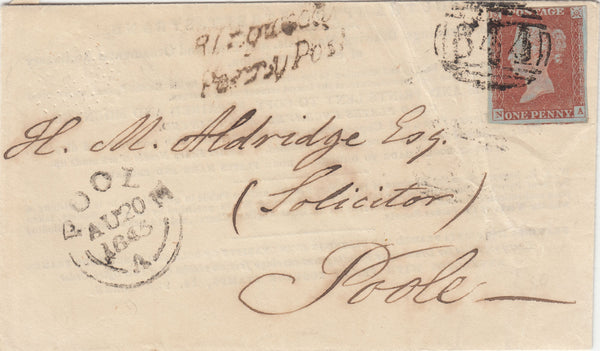 Penny Post
844
POSTAGE
N A
ONE PENNY
H. M. Aldridge Esq.
(Solicitor)
Poole
POOLE
AU 20
1845
A